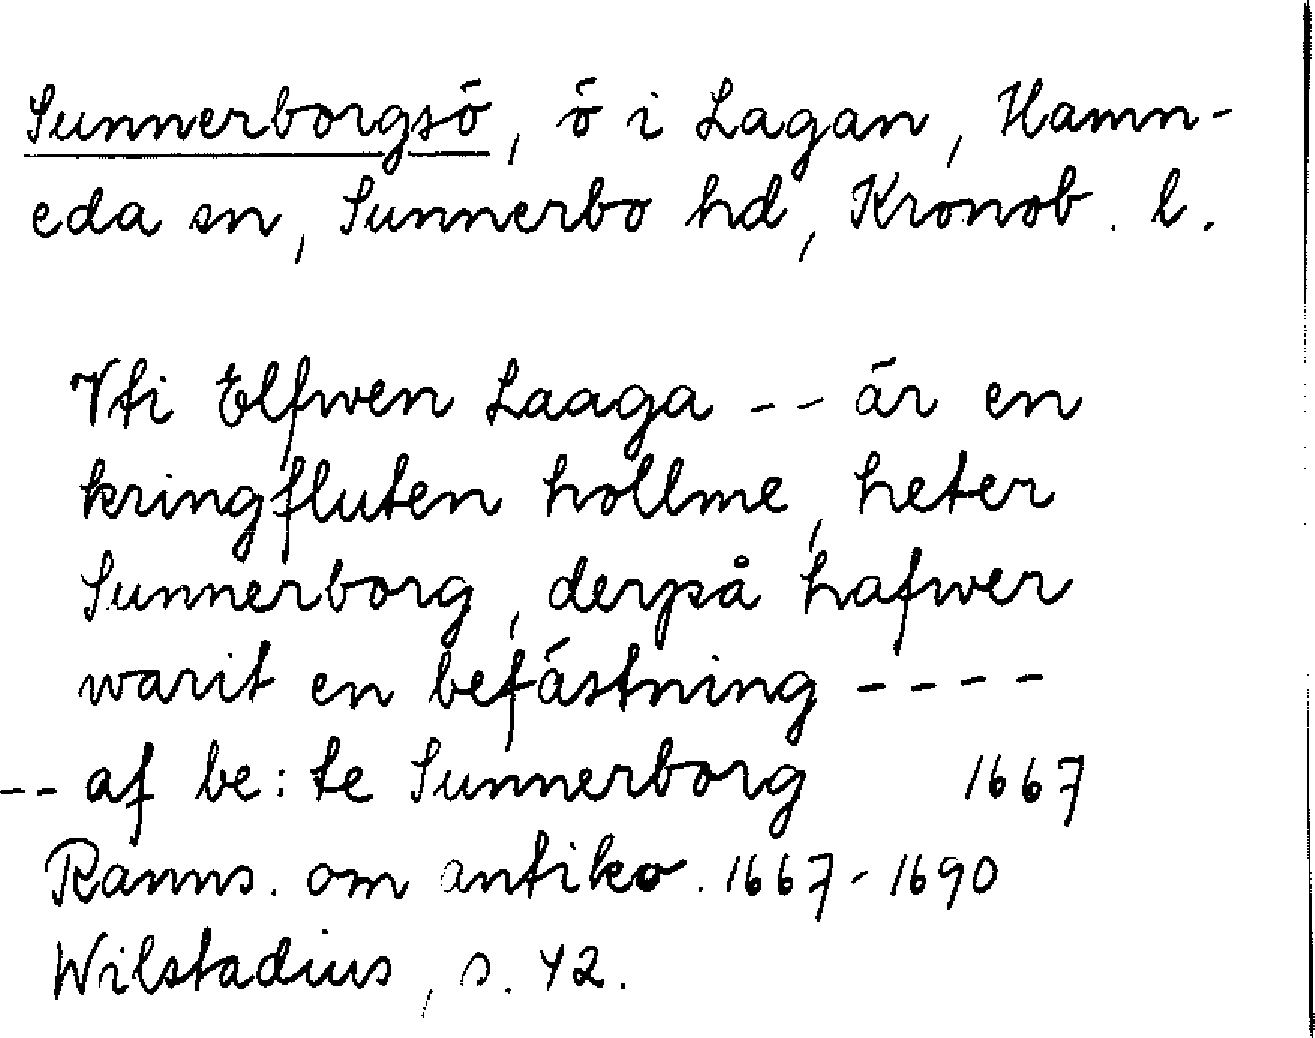 Sunnerborgsö, ö i Lagan, Hamn-
eda sn, Sunnerbo hd, Kronob. l.
Vti Elfwen Laaga -- är en
kringfluten hollme, heter
Sunnerborg, derpå hafwer
warit en befästning ----
-- af be:te Sunnerborg 1667
Ranns. om antikv. 1667-1690
Wilstadius, s. 42.